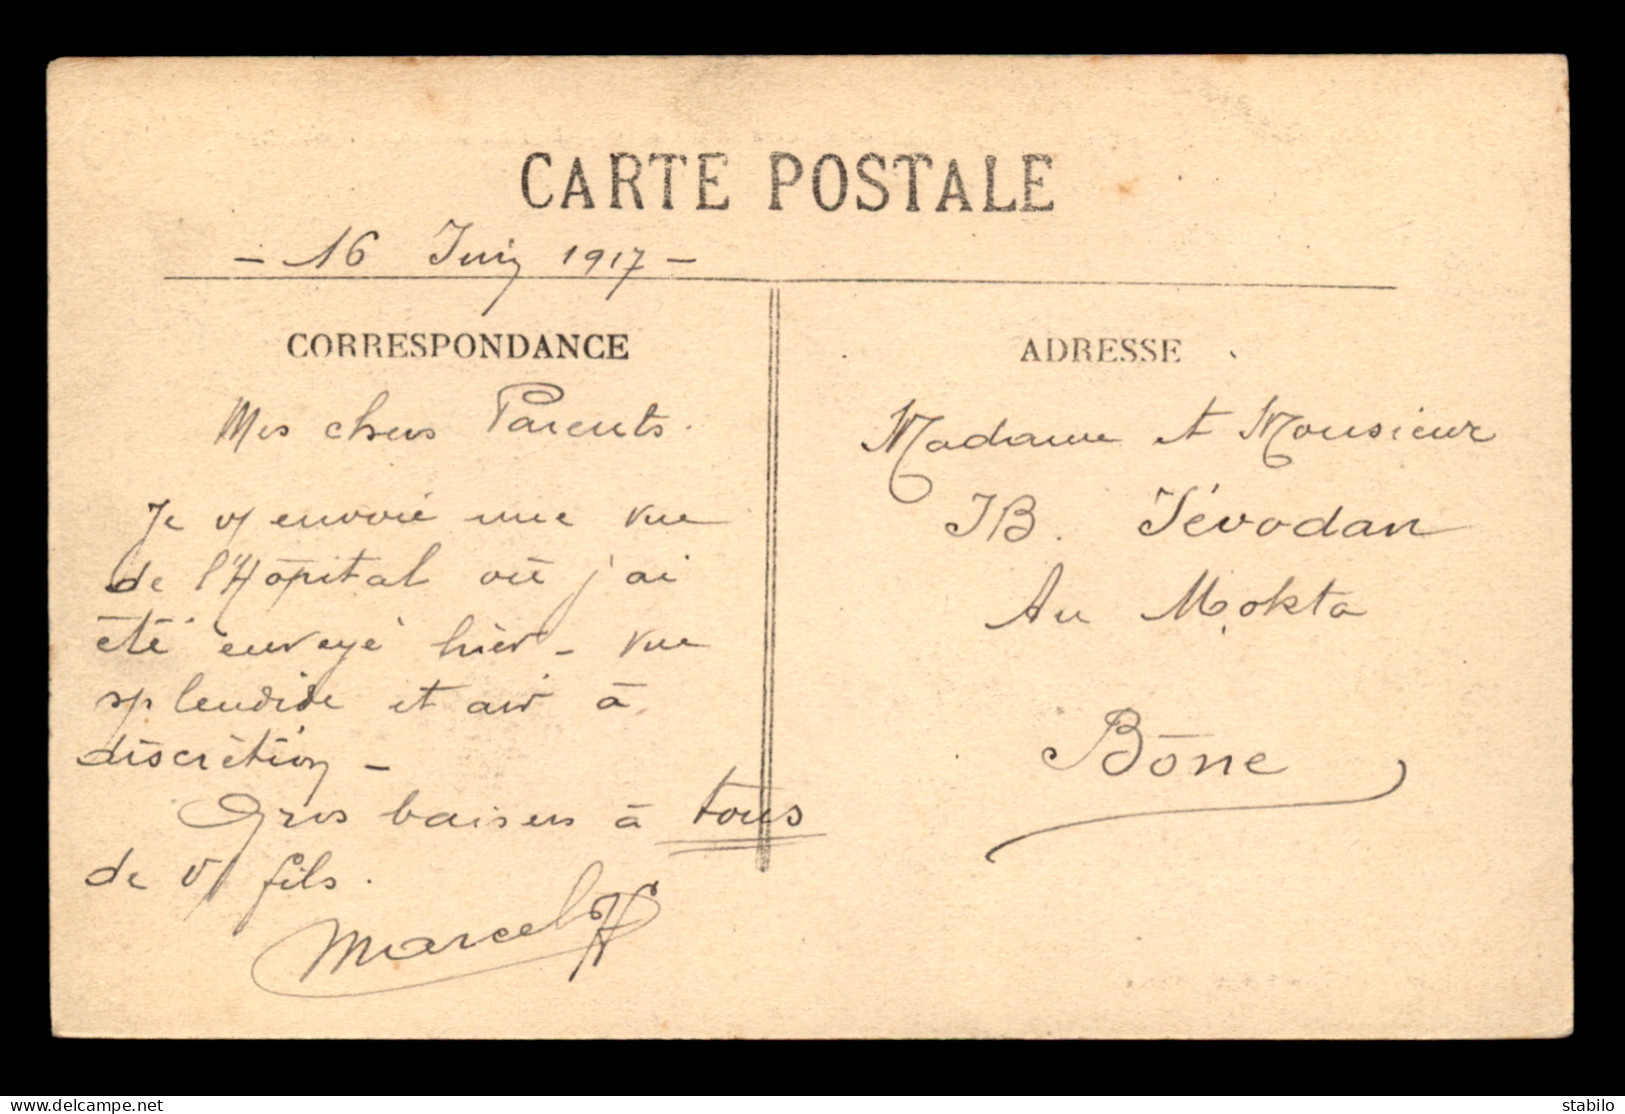 CARTE POSTALE
- 16 Juin 1917 -
CORRESPONDANCE
Mes chers Parents.
Je v/ envoie une vue
de l'Hôpital où j'ai
été envoyé hier - vue
splendide et air à
discrétion -
Gros baisers à tous
de v/ fils.
Marcel
ADRESSE
Madame et Monsieur
JB. Jévodan
Au Mokta
Bône
delcampe.net
stabilo